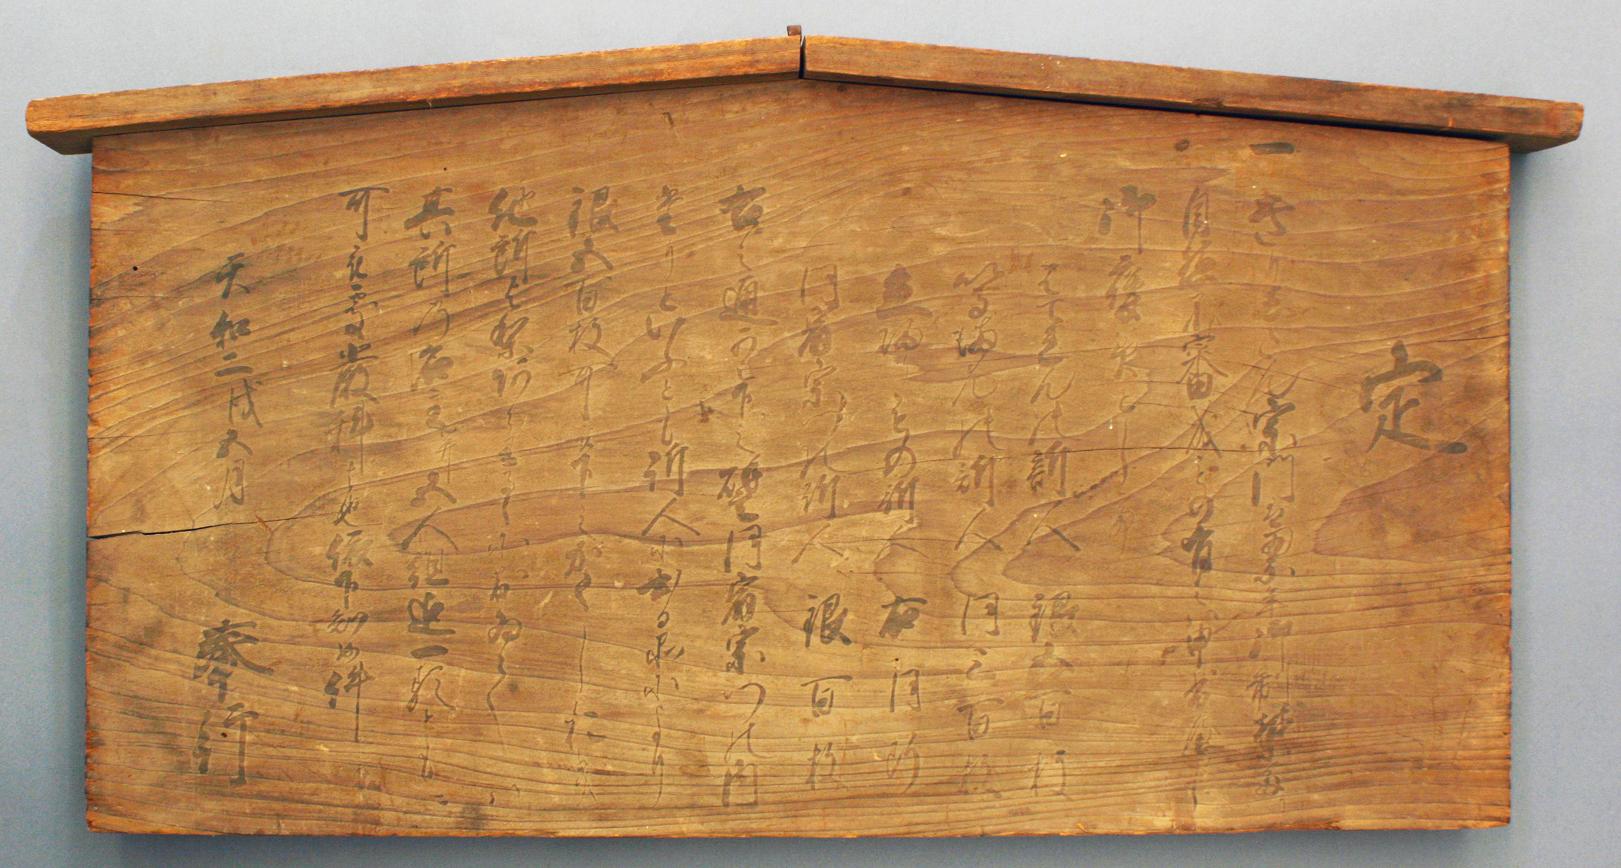 定
一 きりしたん宗門は累年御制禁たり
自然不審成もの有之は申出へし
御褒美として
はてれんの訴人 銀五百枚
いるまんの訴人 同三百枚
立帰ものの訴人 右同断
同宿并宗門の訴人 銀百枚
右之通可被下之縦同宿宗門の内
たりといふとも訴人に出る品により
銀五百枚可被下之かくし置
他所よりあらはるゝにおゐては
其所の名主并五人組迄一類ともに
可被處嚴科者也仍下知如件
天和二戌五月
奉行